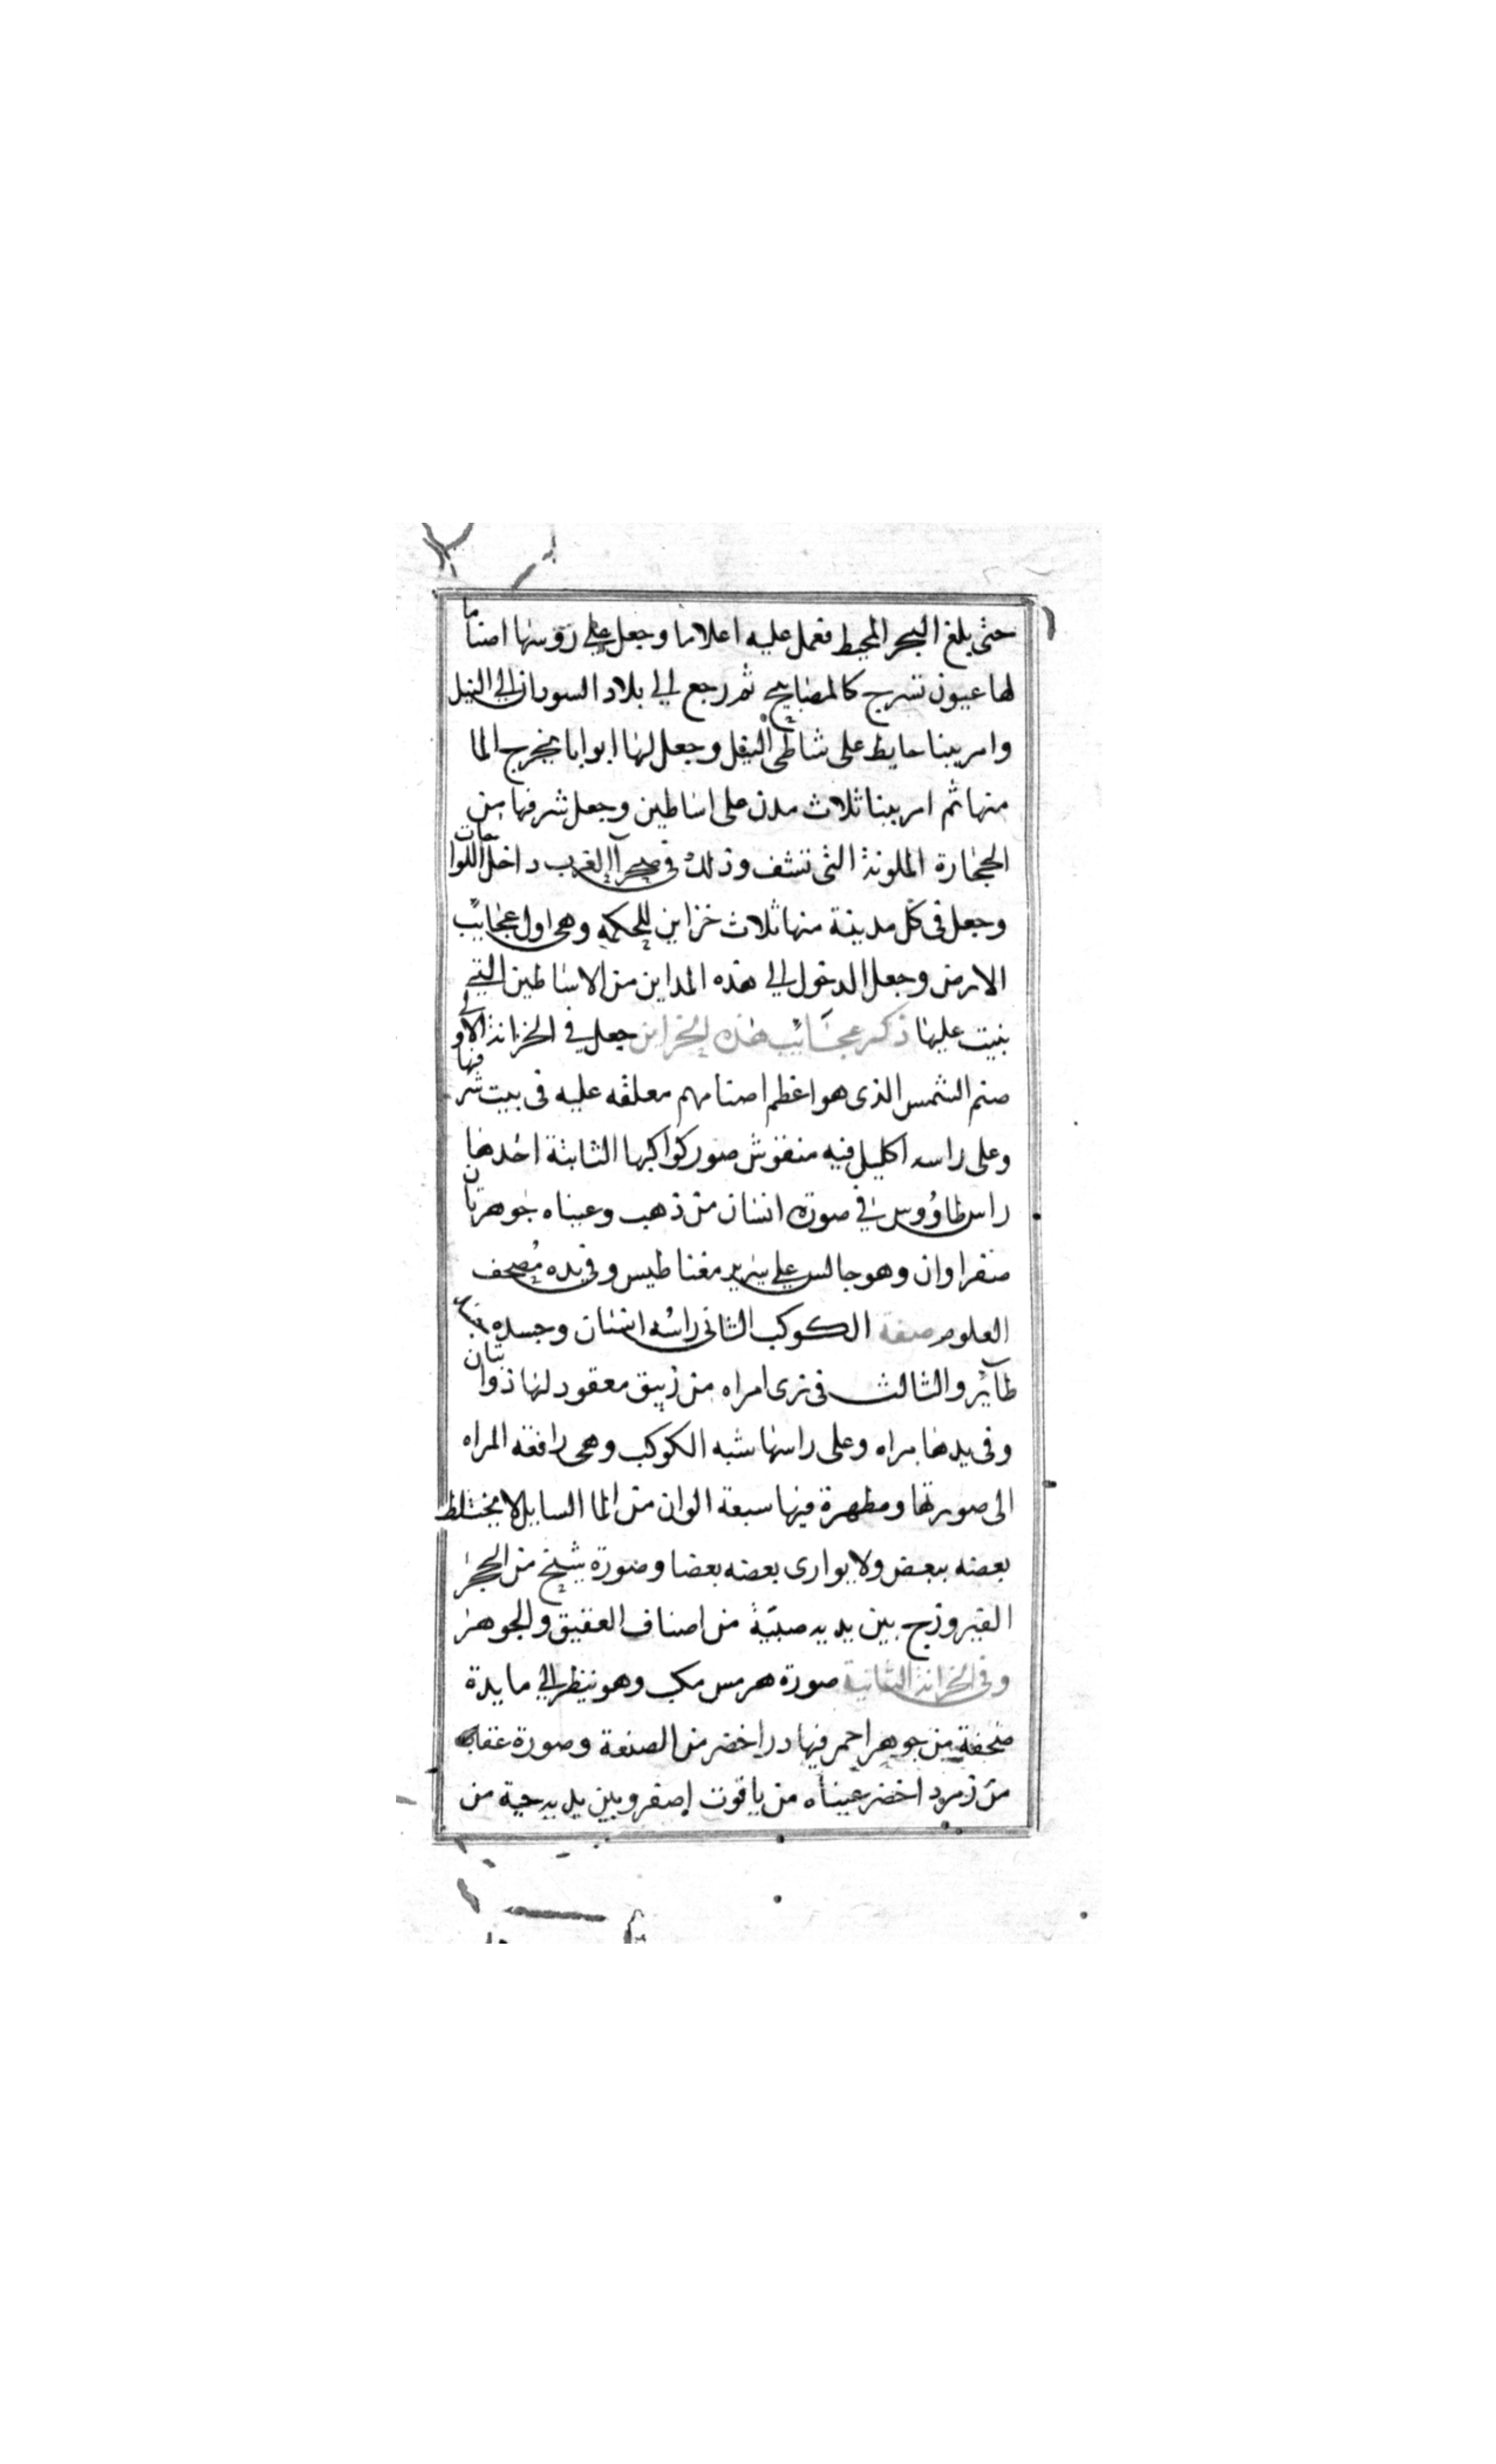 حتى بلغ البحر المحيط فعمل عليه اعلاما وجعل على رؤسها اصناما
لها عيون تسرج كالمصابيح ثم رجع الى بلاد السودان الى النيل
وامر ببنا حايط على شاطى النيل وجعل لها ابوابا يخرج الما
منها ثم امر ببنا ثلاث مدن على اساطين وجعل شرفها من
الحجارة الملونة التى تشف وذلك فى صحرآ الغرب داخل اللواحات
وجعل فى كل مدينة منها ثلاث خزاين للحكمه وهى اول عجايب
الارض وجعل الدخول الى هذه المداين من الاساطين التى
بنيت عليها ذكر عجائب هذه الخزاين جعل فى الخزانة الاولى
صنم الشمس الذى هو اعظم اصنامهم معلقه عليه فى بيت شرفها
وعلى راسه اكليل فيه منقوش صور كواكبها الثابتة احدها
راس طاووس فى صورة انسان من ذهب وعيناه جوهرتان
صفراوان وهو جالس على سرير مغناطيس وفى يده مصحف
العلوم صفة الكوكب الثانى راسه انسان وجسده
طآئر والثالث فى زى امراه من زيبق معقود لها ذوابتان
وفى يدها مراه وعلى راسها شبه الكوكب وهى رافعه المراه
الى صورتها ومطهرة فيها سبعة الوان من الما السايل لا يختلط
بعضه ببعض ولا يوارى بعضه بعضا وصورة شيخ من الحجر
الفيروزج بين يديه صبية من اصناف العقيق والجوهر
وفى الخزانة الثانية صورة هرمس مكب وهو ينظر الى مايدة
صحفة من جوهر احمر فيها در اخضر من الصنعة وصورة عقاب
من زمرد اخضر عيناه من ياقوت اصفر وبين يديه حية من